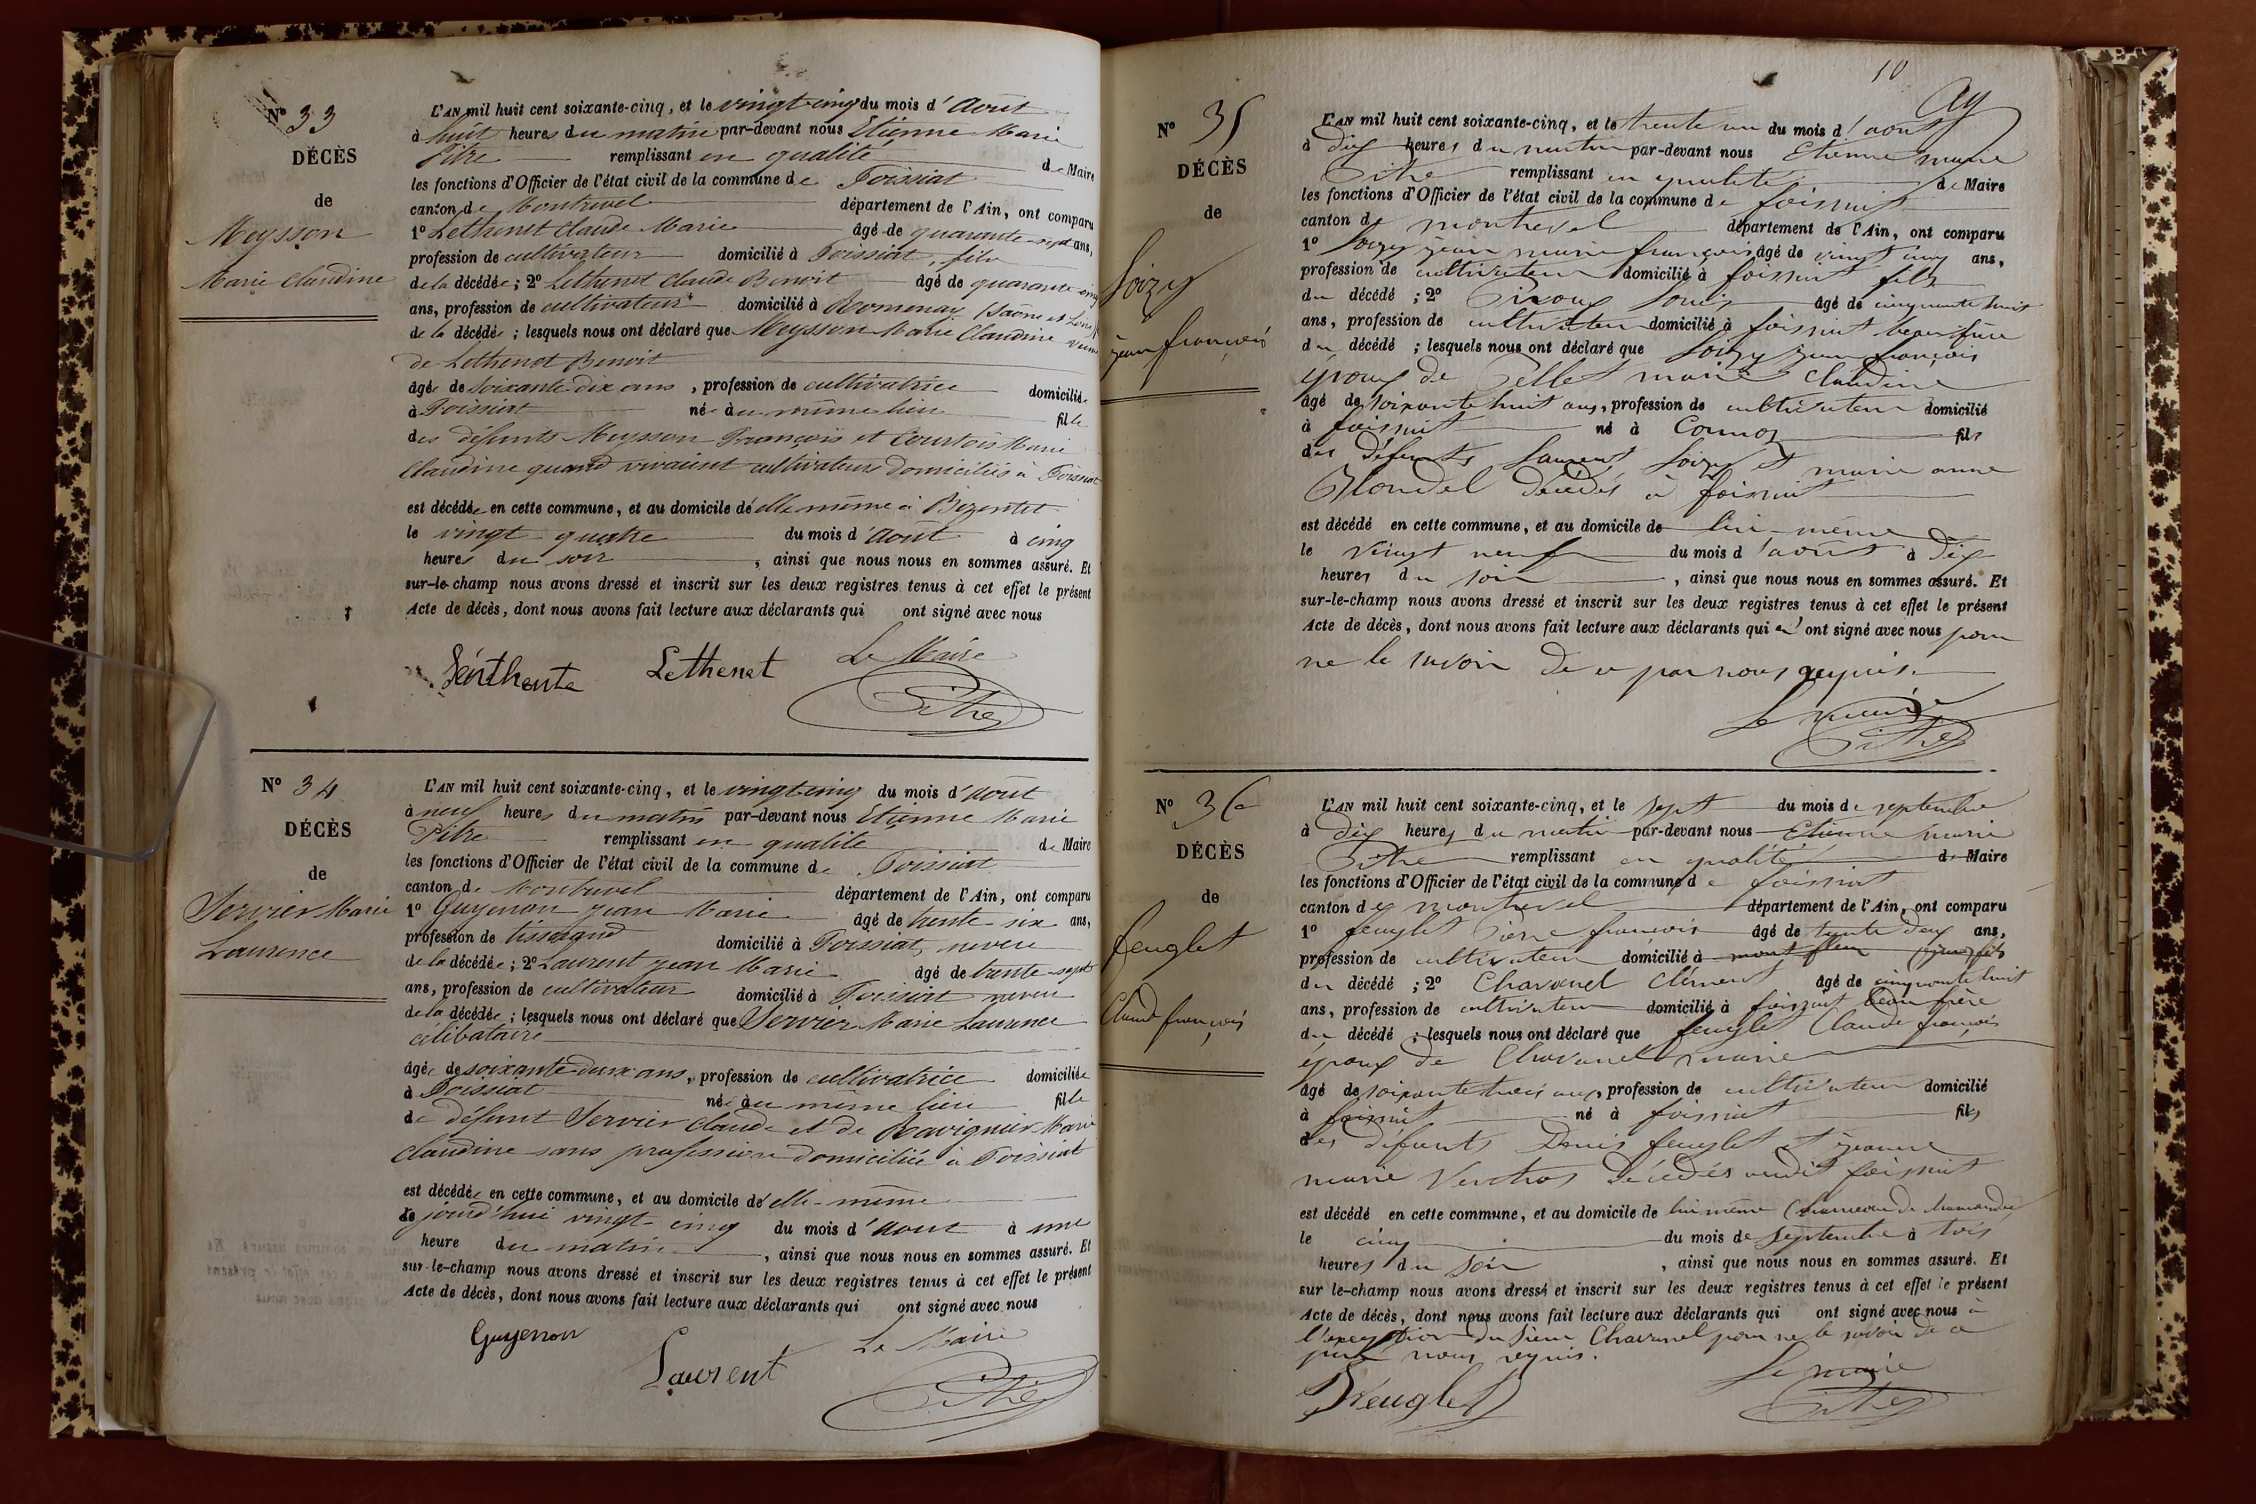 N° 33
DÉCÈS
de
Meysson
Marie Claudine
L'AN mil huit cent soixante-cinq, et le vingt cinq du mois d'août
à huit heures du matin par-devant nous Etienne Marie
Pitre remplissant en qualité de Maire
les fonctions d'Officier de l'état civil de la commune de Foissiat
canton de Montrevel département de l'Ain, ont comparu
1° Lethenet Claude Marie âgé de quarante-sept ans,
profession de cultivateur domicilié à Foissiat, fils
de la décédée ; 2° Lethenet Claude Benoit âgé de quarante cinq
ans, profession de cultivateur domicilié à Romenay (Saône et Loire)
de la décédée ; lesquels nous ont déclaré que Meysson Marie Claudine veuve
de Lethenet Benoit
âgée de soixante-dix ans, profession de cultivatrice domiciliée
à Foissiat née au même lieu fille
des défunts Meysson François et Courtois Marie
Claudine quand vivaient cultivateurs domiciliés à Foissiat
est décédée en cette commune, et au domicile d'elle même à Bizentet
le vingt quatre du mois d'août à cinq
heures du soir, ainsi que nous nous en sommes assuré. Et
sur-le-champ nous avons dressé et inscrit sur les deux registres tenus à cet effet le présent
Acte de décès, dont nous avons fait lecture aux déclarants qui ont signé avec nous
Lethenet Le Maire
Pitre
N° 34
DÉCÈS
de
Servier Marie
Laurence
L'AN mil huit cent soixante-cinq, et le vingt cinq du mois d'août
à neuf heures du matin par-devant nous Etienne Marie
Pitre remplissant en qualité de Maire
les fonctions d'Officier de l'état civil de la commune de Foissiat
canton de Montrevel département de l'Ain, ont comparu
1° Guyenon jean Marie âgé de trente-six ans,
profession de tisserand domicilié à Foissiat, neveu
de la décédée ; 2° Laurent jean Marie âgé de trente-sept
ans, profession de cultivateur domicilié à Foissiat neveu
de la décédée ; lesquels nous ont déclaré que Servier Marie Laurence
célibataire
âgée de soixante-deux ans, profession de cultivatrice domiciliée
à Foissiat née au même lieu fille
de défunt Servier Claude et de Ravignier Marie
Claudine sans profession domiciliée à Foissiat
est décédée en cette commune, et au domicile d'elle-même
jourd'hui vingt-cinq du mois d'août à une
heure du matin, ainsi que nous nous en sommes assuré. Et
sur-le-champ nous avons dressé et inscrit sur les deux registres tenus à cet effet le présent
Acte de décès, dont nous avons fait lecture aux déclarants qui ont signé avec nous
Guyenon Le Maire
Laurent Pitre
10
N° 35
DÉCÈS
de
Soizy
jean françois
L'AN mil huit cent soixante-cinq, et le trente un du mois d'aout
à dix heures du matin par-devant nous Etienne marie
Pitre remplissant en qualité de Maire
les fonctions d'Officier de l'état civil de la commune de foissiat
canton de montrevel département de l'Ain, ont comparu
1° Soizy jean marie françois âgé de vingt cinq ans,
profession de cultivateur domicilié à foissiat fils
du décédé ; 2° Piroux Louis âgé de cinquante huit
ans, profession de cultivateur domicilié à foissiat beau frère
du décédé ; lesquels nous ont déclaré que Soizy jean françois
époux de Pellet marie Claudine
âgé de soixante huit ans, profession de cultivateur domicilié
à foissiat né à Cormoz fils
des défunts Laurent Soizy et marie anne
Blondel décédés à foissiat
est décédé en cette commune, et au domicile de lui-même
le vingt neuf du mois d'aout à dix
heures du soir, ainsi que nous nous en sommes assuré. Et
sur-le-champ nous avons dressé et inscrit sur les deux registres tenus à cet effet le présent
Acte de décès, dont nous avons fait lecture aux déclarants qui n'ont signé avec nous pour
ne le savoir de ce par nous requis.
Le maire
Pitre
N° 36
DÉCÈS
de
feuglet
Claude françois
L'AN mil huit cent soixante-cinq, et le sept du mois de septembre
à dix heures du matin par-devant nous Etienne marie
Pitre remplissant en qualité de Maire
les fonctions d'Officier de l'état civil de la commune de foissiat
canton de montrevel département de l'Ain, ont comparu
1° feuglet Pierre françois âgé de trente deux ans,
profession de cultivateur domicilié à fils
du décédé ; 2° Chavanel Clément âgé de cinquante huit
ans, profession de cultivateur domicilié à foissiat beau frère
du décédé ; lesquels nous ont déclaré que feuglet Claude françois
époux de Chavanel marie
âgé de soixante trois ans, profession de cultivateur domicilié
à foissiat né à foissiat fils
des défunts Denis feuglet et jeanne
marie décédés audit foissiat
est décédé en cette commune, et au domicile de lui même (hameau de
le cinq du mois de septembre à trois
heures du soir, ainsi que nous nous en sommes assuré. Et
sur le-champ nous avons dressé et inscrit sur les deux registres tenus à cet effet le présent
Acte de décès, dont nous avons fait lecture aux déclarants qui ont signé avec nous à
l'exception du sieur Chavanel pour ne le savoir de ce
par nous requis.
Le maire
feuglet Pitre